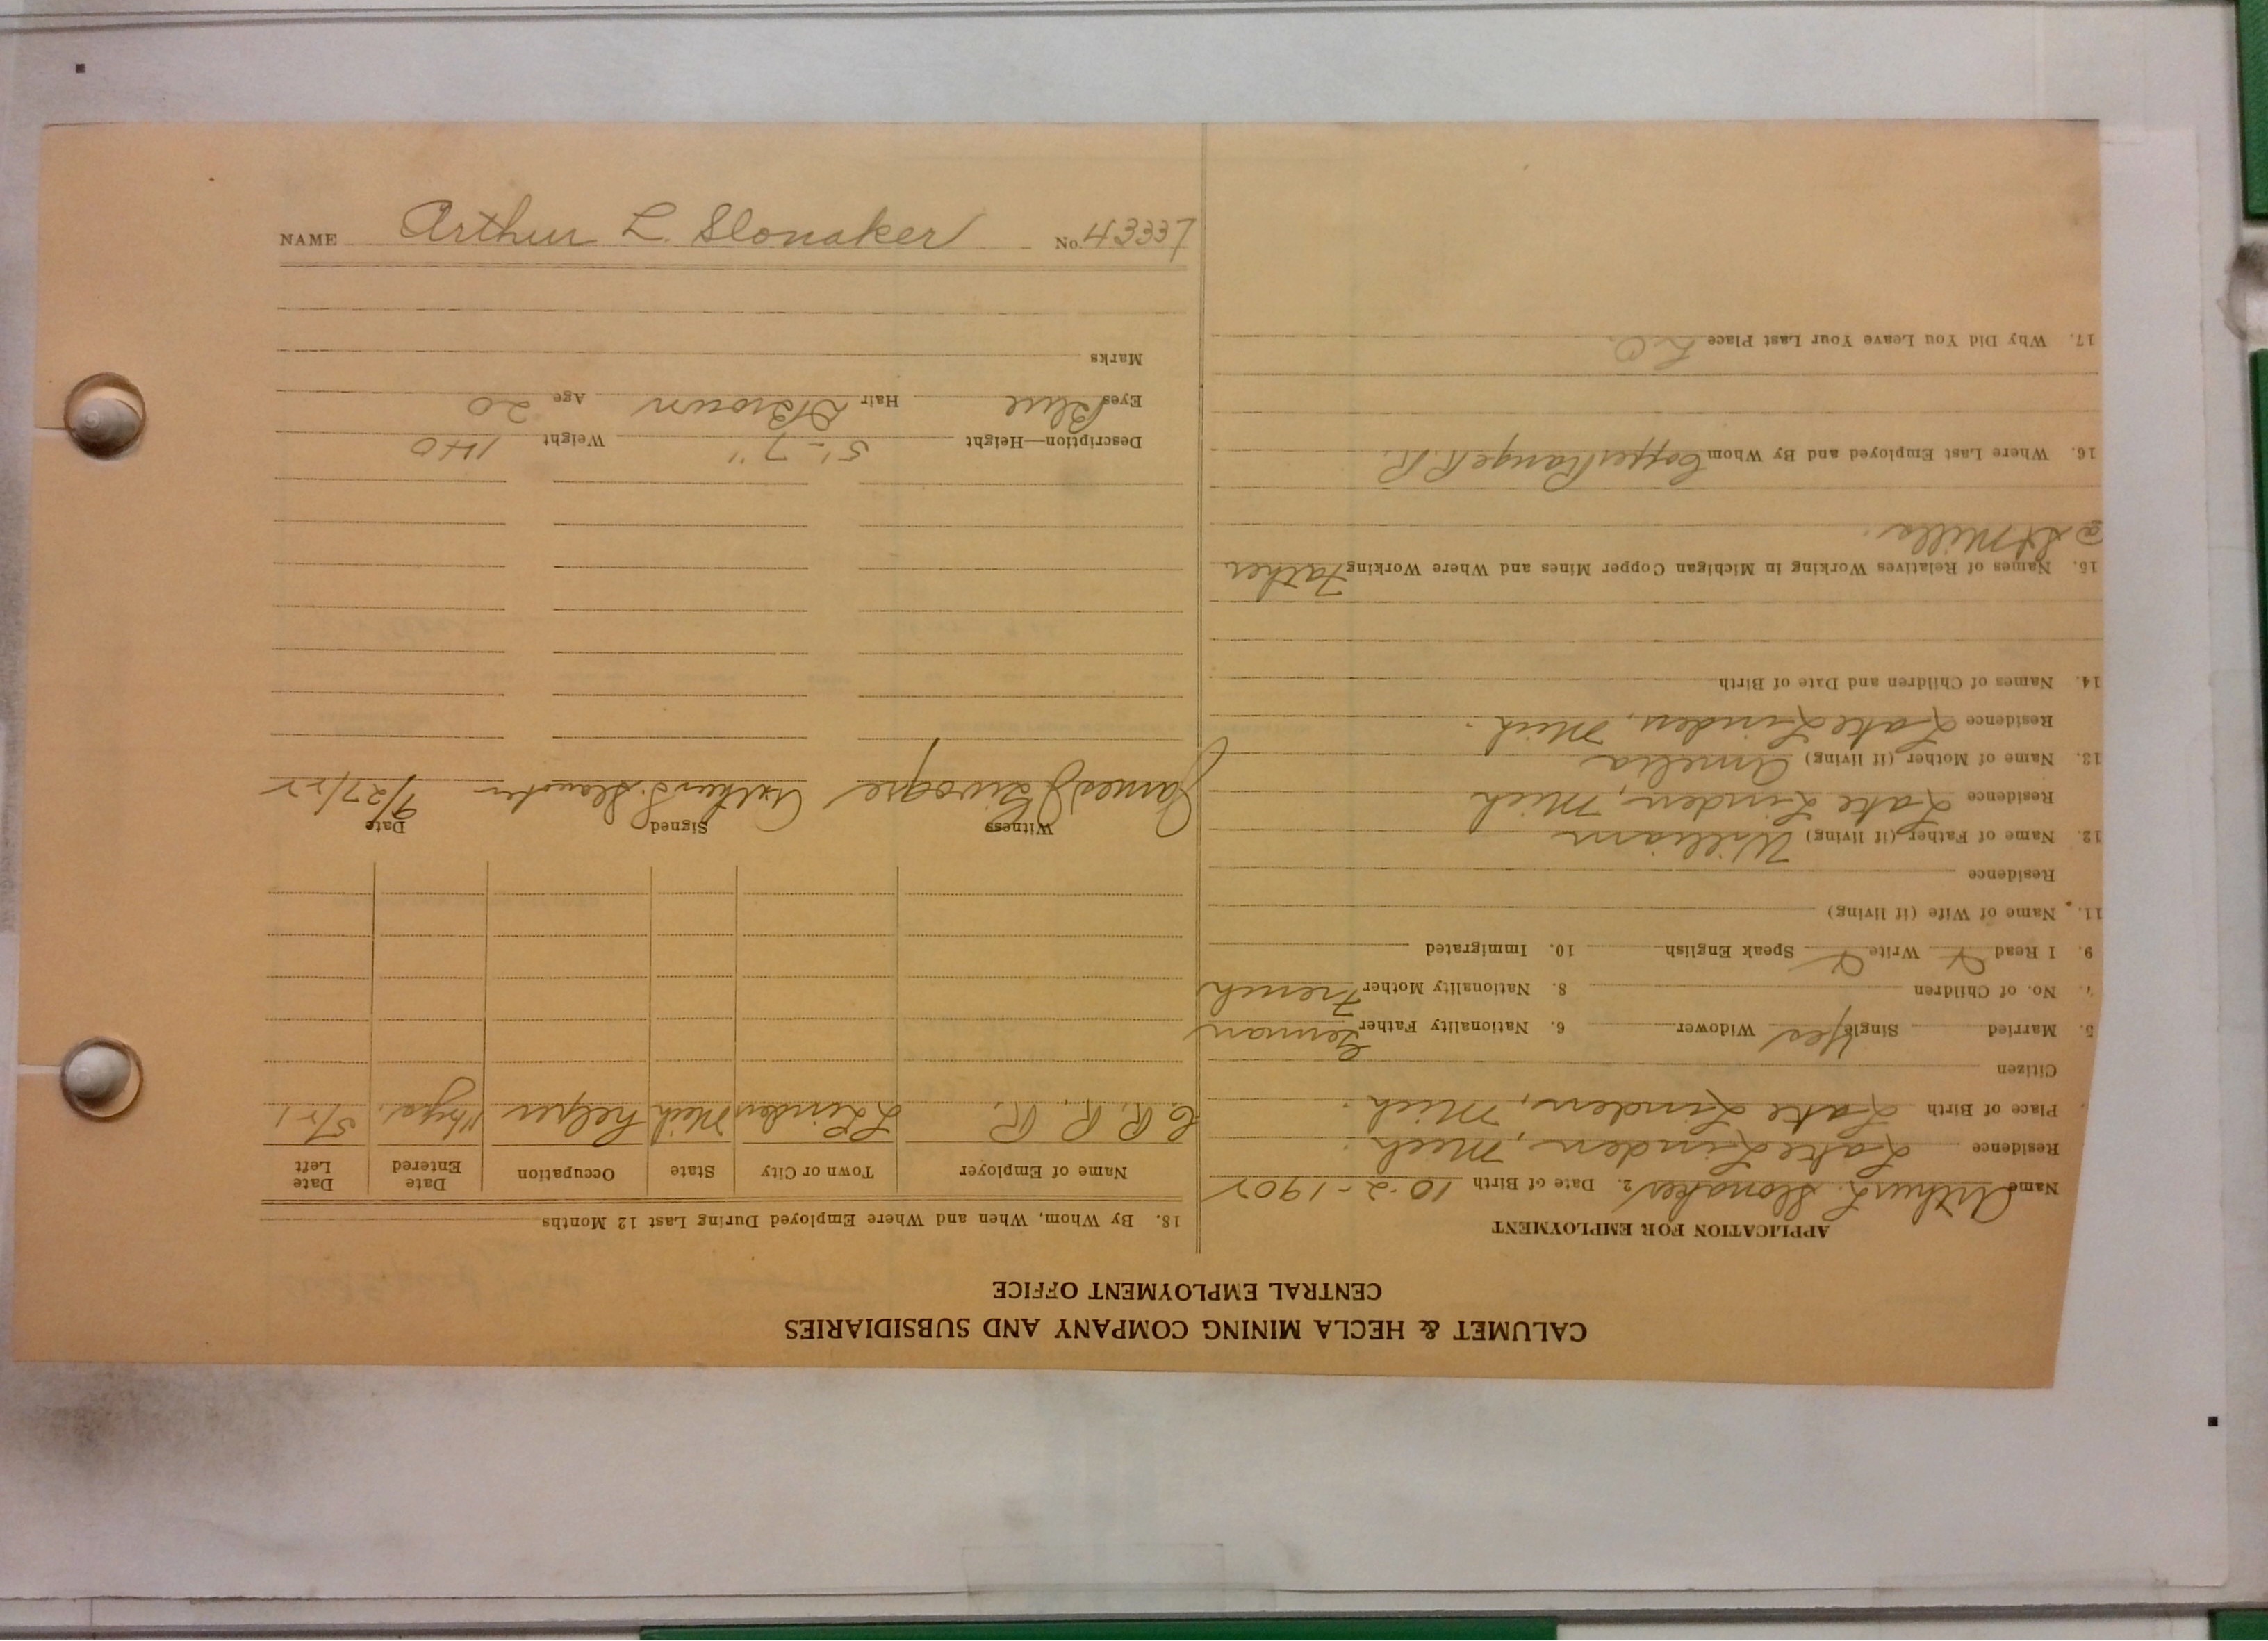 CALUMET & HECLA MINING COMPANY AND SUBSIDIARIES
CENTRAL EMPLOYMENT OFFICE
APPLICATION FOR EMPLOYMENT
Name Arthur L. Slonaker 2. Date of Birth 10-2-1902
Residence Lake Linden, Mich.
Place of Birth Lake Linden, Mich.
Citizen
5. Married Single Yes Widower 6. Nationality Father German
7. No. of Children 8. Nationality Mother French
9. I Read Write Speak English 10. Immigrated
11. Name of Wife (if living)
Residence
12. Name of Father (if living) William
Residence Lake Linden, Mich
13. Name of Mother (if living) Amelia
Residence Lake Linden, Mich.
14. Names of Children and Date of Birth
15. Names of Relatives Working in Michigan Copper Mines and Where Working Father
@ St Mills.
16. Where Last Employed and By Whom Copper Range R.R.
17. Why Did You Leave Your Last Place
18. By Whom, When and Where Employed During Last 12 Months
Name of Employer Town or City State Occupation Date Entered Date Left
C. R. R. R. L Linden Mich helper 5/21
Witness Signed Date
James Arthur L. Slonaker 9/27/22
Description—Height 5'-7" Weight 140
Eyes Blue Hair D Brown Age 20
Marks
NAME Arthur L. Slonaker No. 43337